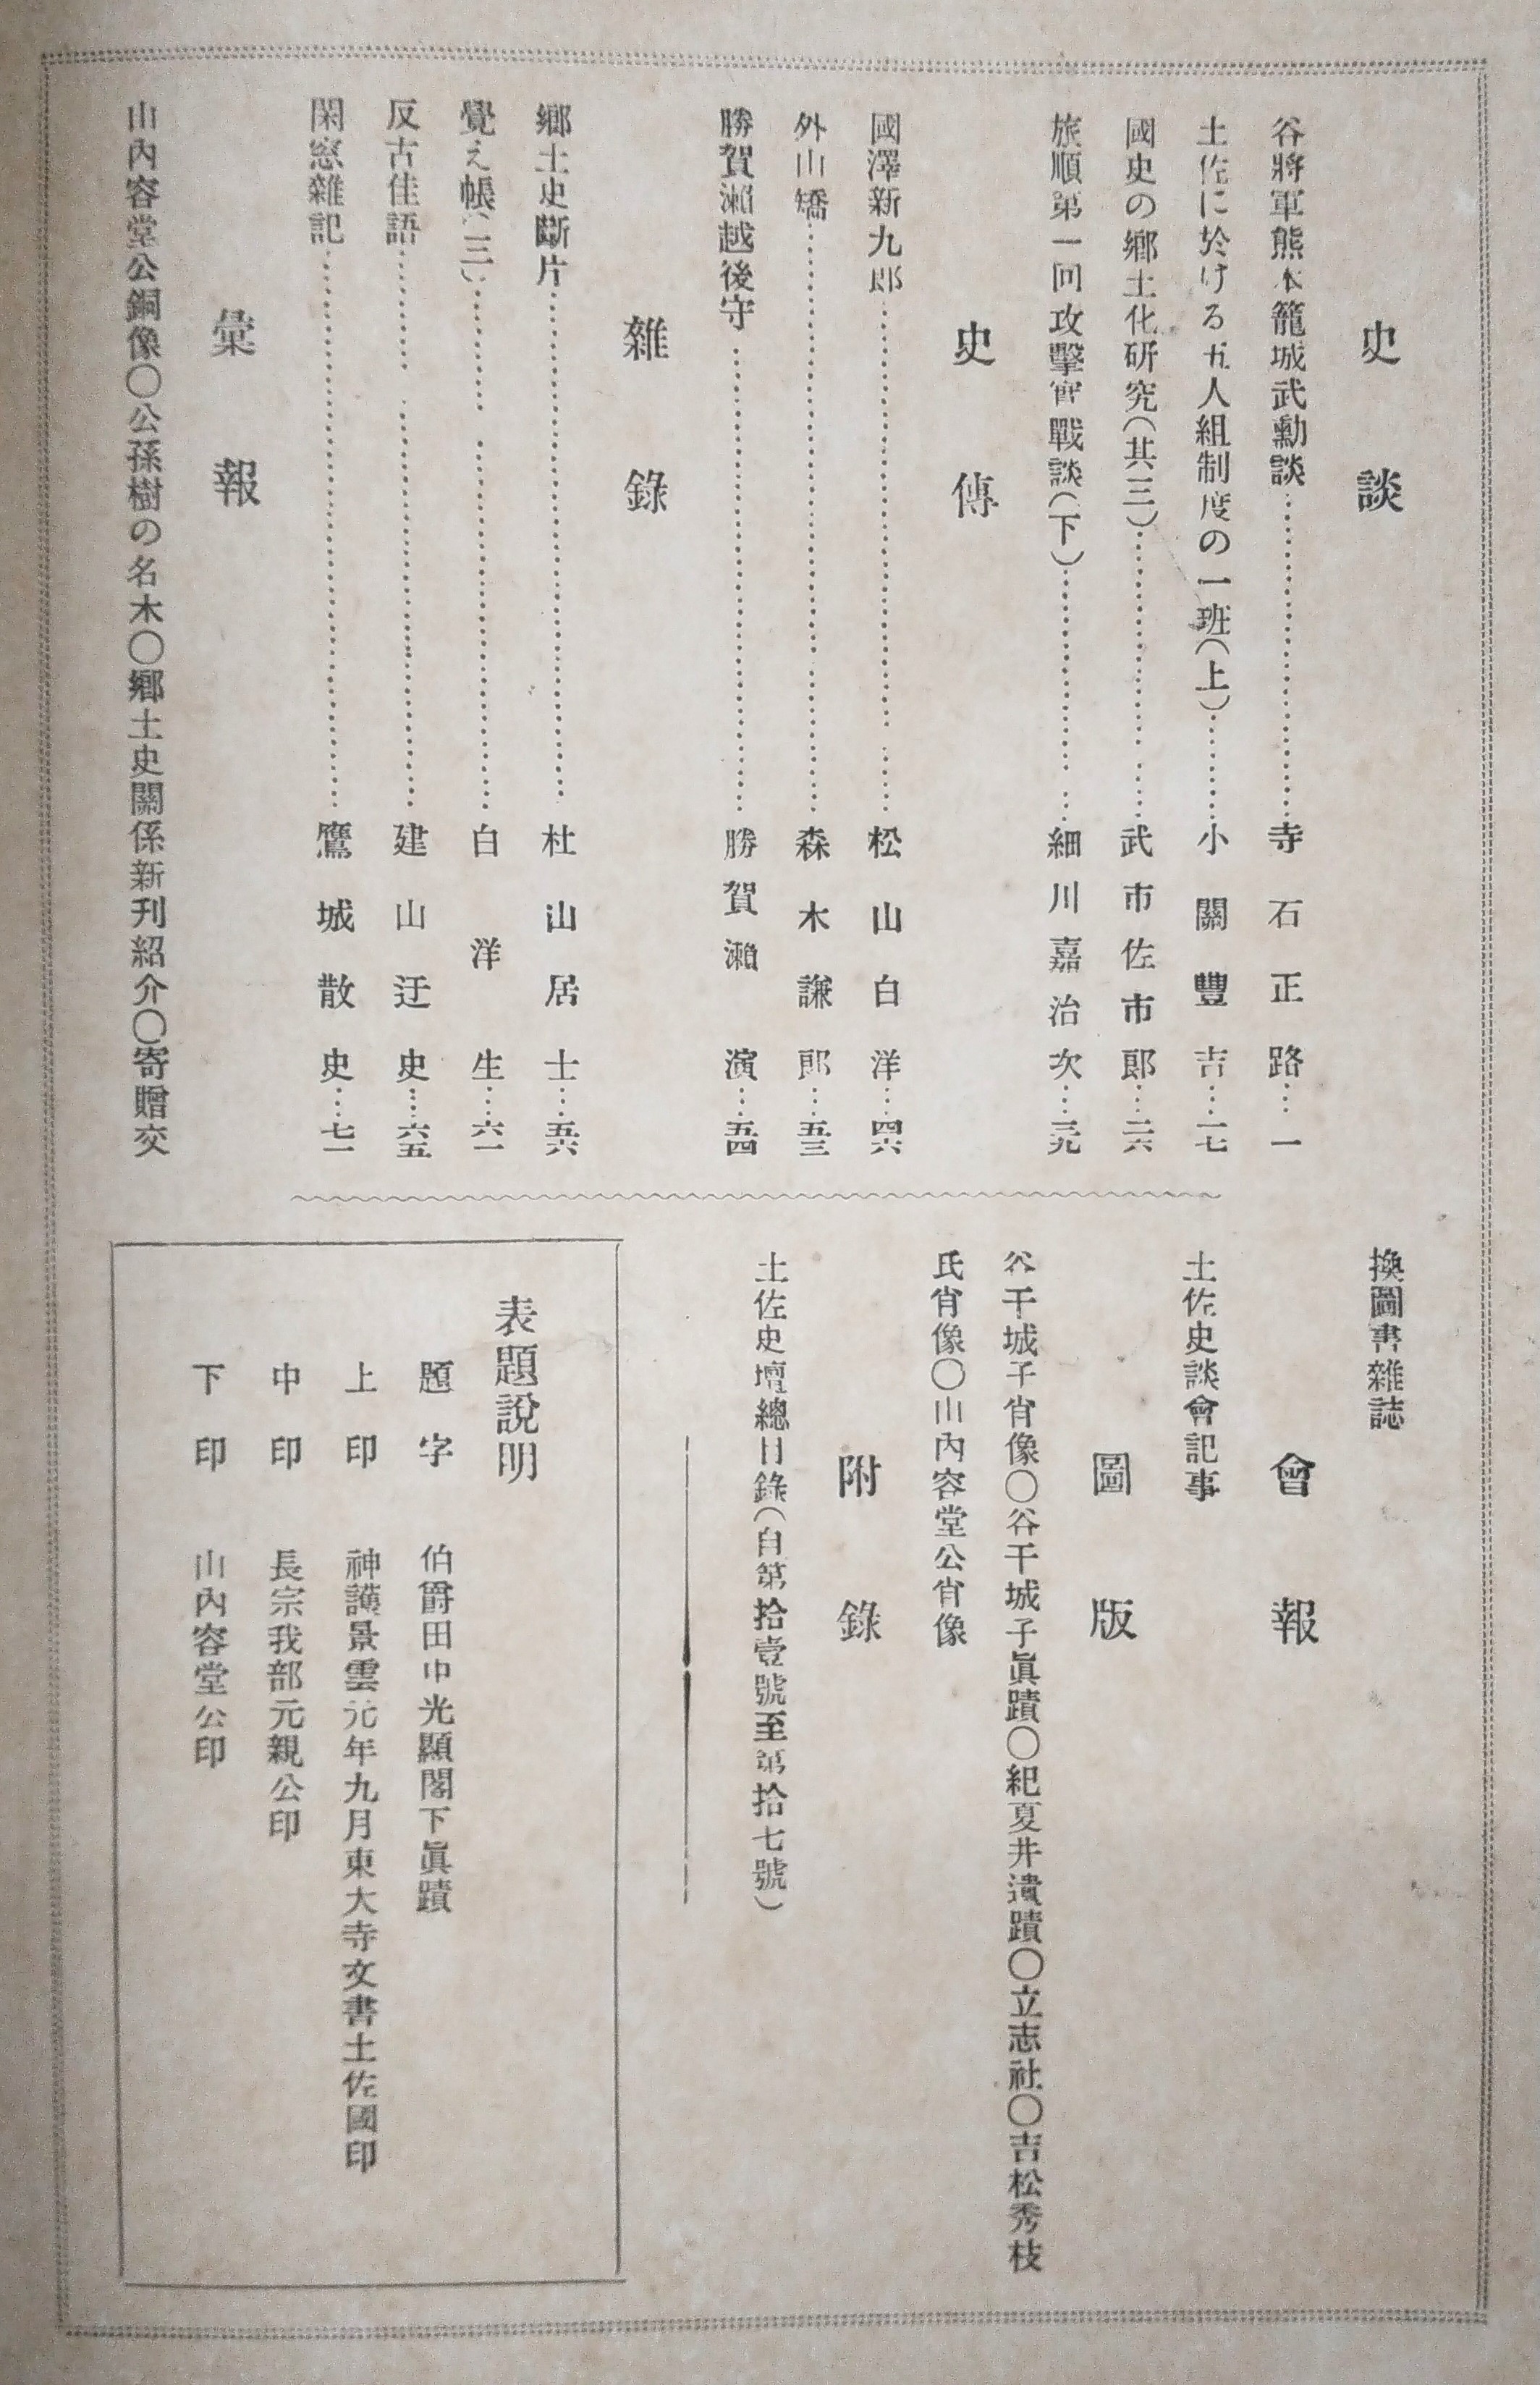 史談
谷將軍熊本籠城武勳談……………………寺石正路……一
土佐に於ける五人組制度の一班(上)………小關豐吉……一七
國史の鄕土化硏究(其三)…………………武市佐市郞……二六
旅順第一回攻擊實戰談(下)………………細川嘉治次……三九
史傳
國澤新九郞……………………………………松山白洋……四六
外山矯…………………………………………森木謙郞……五三
勝賀瀨越後守…………………………………勝賀瀨演……五四
雜錄
鄕土史斷片……………………………………杜山居士……五六
覺え帳(三)……………………………………白洋生……六一
反古佳語………………………………………建山迂史……六五
閑窓雜記………………………………………鷹城散史……七一
彙報
山內容堂公銅像〇公孫樹の名木〇鄕土史關係新刊紹介〇寄贈交
換圖書雜誌
會報
土佐史談會記事
圖版
谷干城子肖像〇谷干城子眞蹟〇紀夏井遺蹟〇立志社〇吉松秀枝
氏肖像〇山內容堂公肖像
附錄
土佐史壇總目錄(自第拾壹號至第拾七號)
表題說明
題字 伯爵田中光顯閣下眞蹟
上印 神護景雲元年九月東大寺文書土佐國印
中印 長宗我部元親公印
下印 山內容堂公印